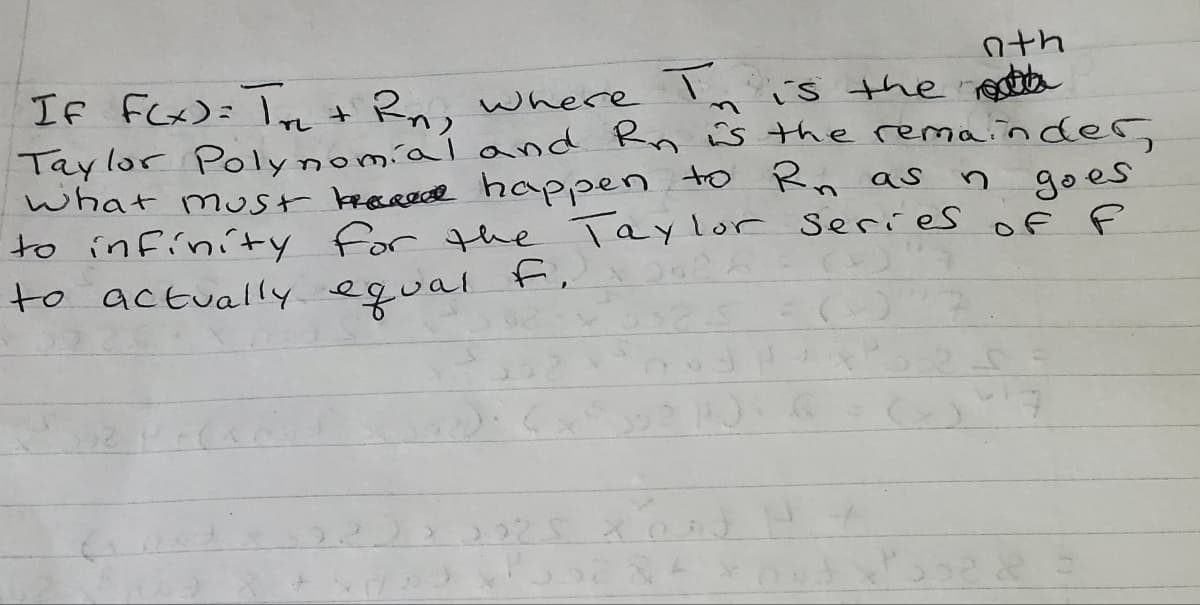 nth
If f(x) = Tn + Rn, where Tn is the
Taylor Polynomial and Rn is the remainder,
what must happen to Rn as n goes
to infinity for the Taylor series of f
to actually equal f.